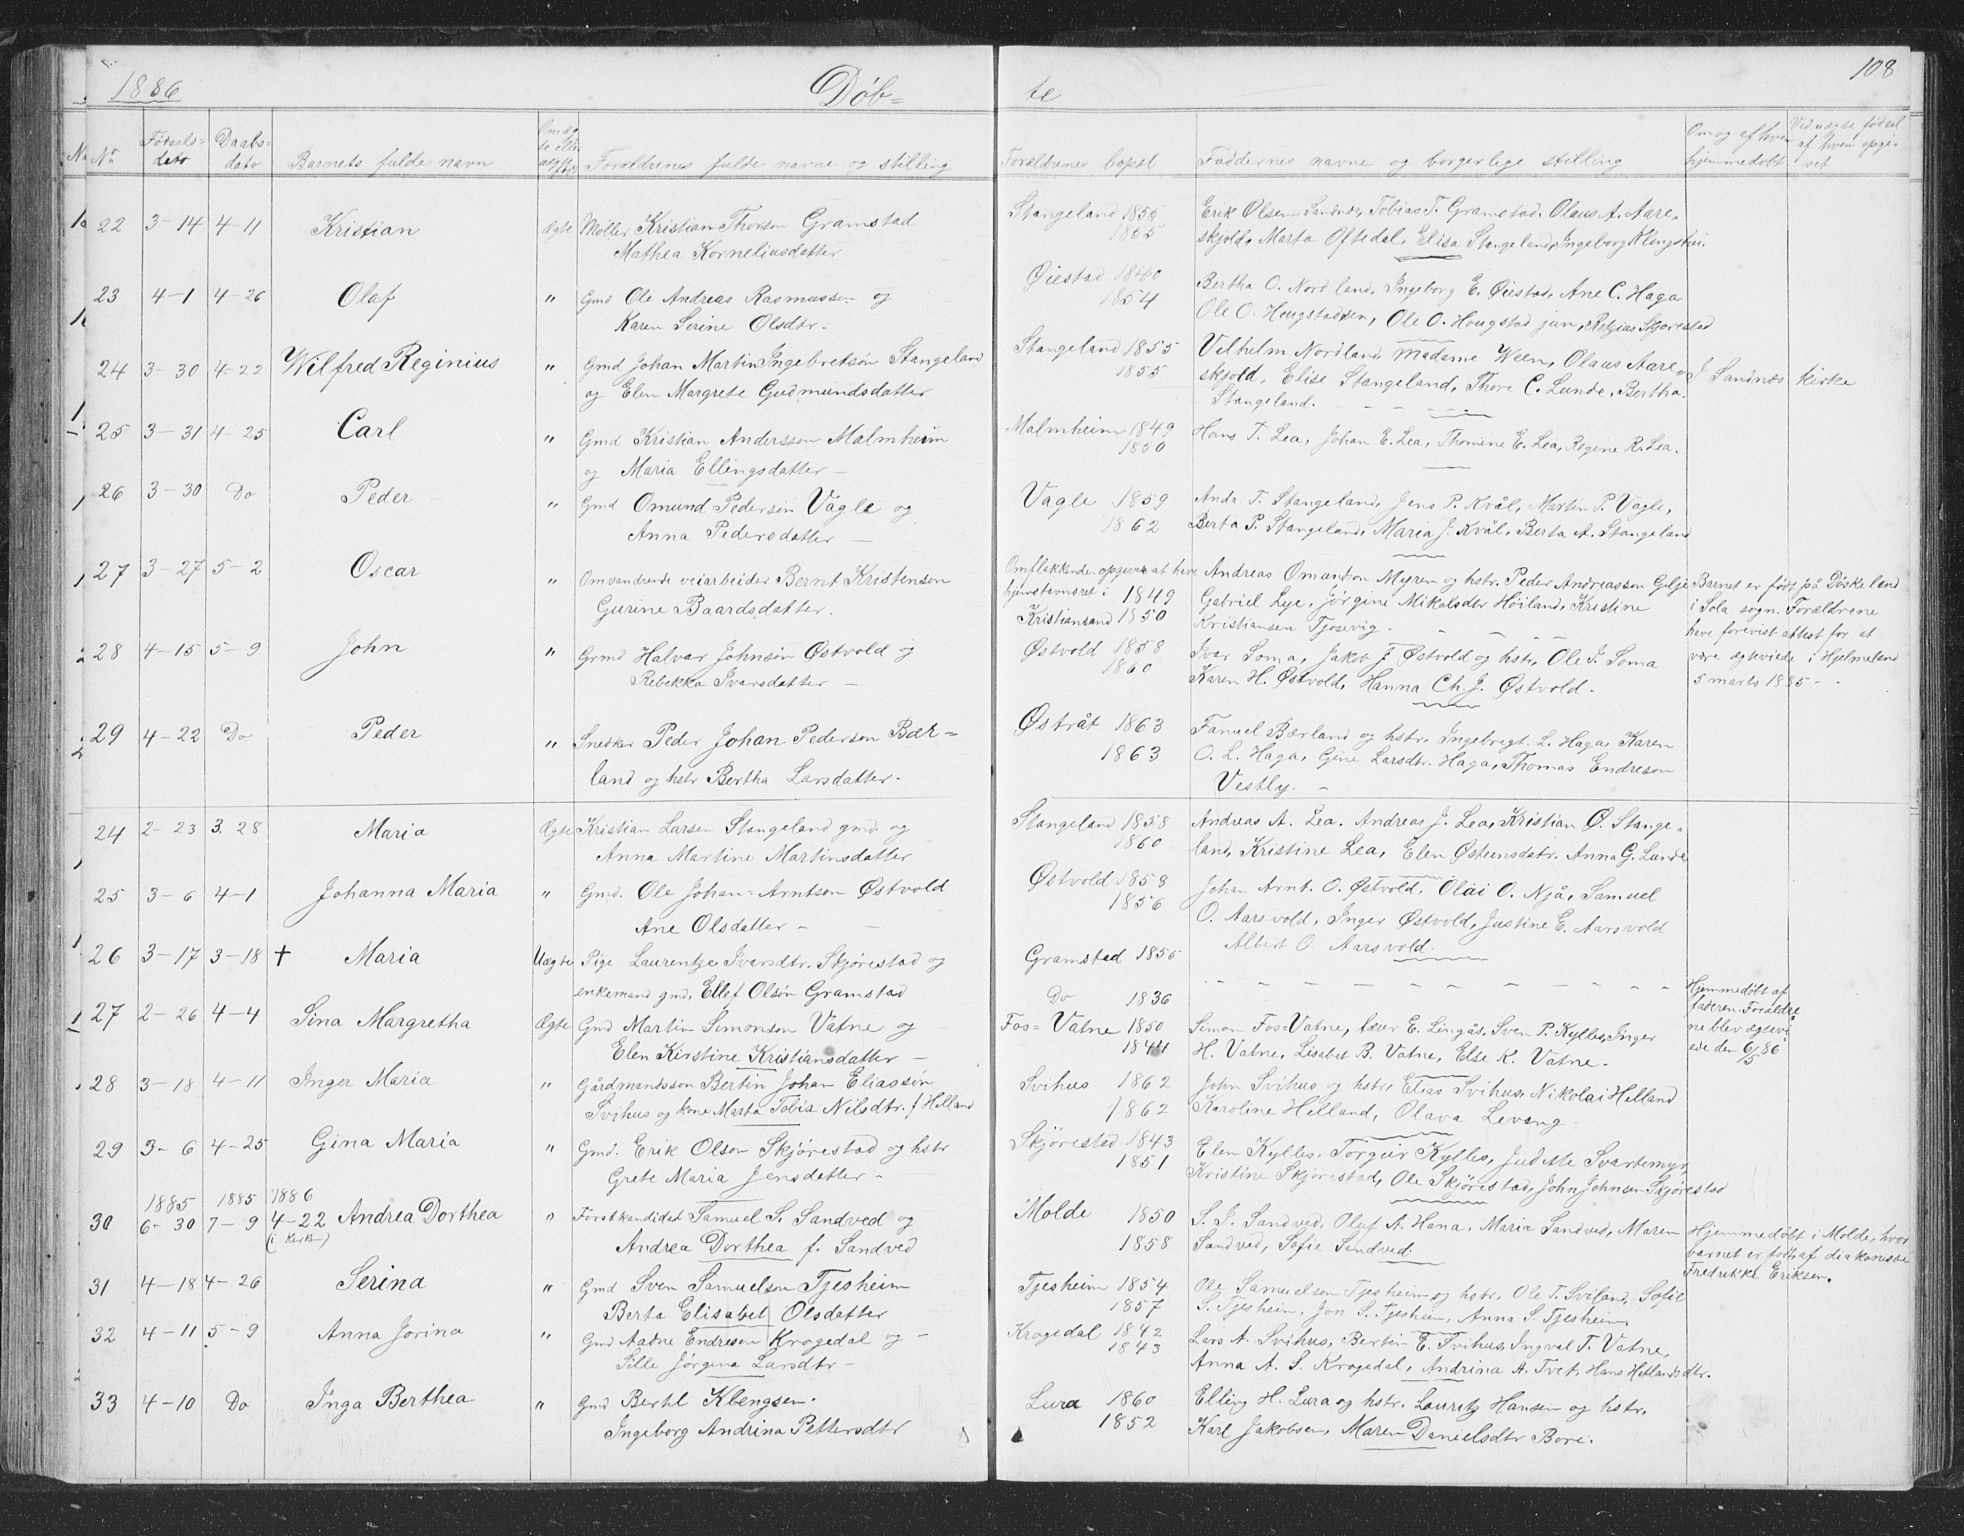 1886 Døb- te 108
No Fødsels-dato Daabs-dato Barnets fulde navn Forældrenes fulde navne og stilling Forældrenes bopæl Faddernes navne og borgerlige stilling Om og af hvem hjemmedøbt Ved uægte fødsel af hvem opgivet
22 3-14 4-11 Kristian Ægte Møller Kristian Thorson Gramstad Stangeland 1855 Erik Olsen Sandnes, Tobias T. Gramstad, Olaus A. Aare-
Mathea Korneliusdatter 1855 skjold, Marta Oftedal, Elisa Stangeland, Ingeborg Klingshei.
23 4-1 4-26 Olaf " Gmd Ole Andreas Rasmussen og Øiestad 1840 Bertha O. Nordland, Ingeborg E. Øiestad, Ane C. Haga
Karen Serine Olsdtr. 1854 Ole O. Hougstadsen, Ole O. Hougstad jun, Retzius Skjørestad
24 3-30 4-22 Wilfred Reginius " Gmd Johan Martin Ingebretsøn Stangeland Stangeland 1855 Vilhelm Nordland, Madame Ween, Olaus Aare-
og Elen Margrete Gudmundsdatter 1855 skjold, Elise Stangeland, Thore C. Lunde, Bertha I Sandnæs kirke
Stangeland.
25 3-31 4-25 Carl " Gmd Kristian Anderssen Malmheim Malmheim 1849 Hans T. Lea, Johan E. Lea, Thomine E. Lea, Regine R. Lea.
og Maria Ellingsdatter - 1850
26 3-30 Do Peder " Gmd Omund Pedersøn Vagle og Vagle 1859 Andr. T. Stangeland, Jens P. Kvål, Martin P. Vagle,
Anna Pedersdatter - 1862 Berta P. Stangeland, Maria J. Kvål, Berta A. Stangeland
27 3-27 5-2 Oscar " Omvandrende veiarbeider Bernt Kristensen Omflakkende opgives at have Andreas Omundson Myren og hstr. Peder Andreassen Gilje Barnet er født på Døskeland
Gurine Baardsdatter. hjemstavnsret i 1849 Gabriel Lye, Jørgine Mikalsdtr Høiland, Kristine i Sola sogn. Forældrene
Kristiansand 1850 Kristiansen Tjosevig. have forevist attest for at
28 4-15 5-9 John " Grmd Halvar Johnsøn Østvold og Østvold 1858 Ivar Soma, Jakob J Østvold og hstr, Ole J. Soma være egteviede i Hjelmeland
Rebekka Ivarsdatter - 1860 Karen H. Østvold, Hanna Ch. J. Østvold. 5 marts 1885
29 4-22 Do Peder " Snedker Peder Johan Pedersen Bær- Østråt 1863 Fanuel Bærland og hstr, Ingebrigt L. Haga, Karen
land og hstr Bertha Larsdatter. 1863 O. L. Haga, Gine Larsdtr. Haga, Thomas Endreson
Vestly.
24 2-23 3.28 Maria Ægte Kristian Larsen Stangeland gmd. og Stangeland 1858 Andreas A. Lea. Andreas J. Lea, Kristian Ø. Stange-
Anna Martine Martinsdatter 1860 land, Kristine Lea, Elen Østensdatr. Anna G. Lunde
25 3-6 4-1 Johanna Maria " Gmd. Ole Johan Arntsøn Østvold Østvold 1859 Johan Arnt. O. Østvold, Olai O. Njå, Samuel
Ane Olsdatter - 1856 O. Aarsvold, Inger Østvold, Justine E. Aarsvold
Albert O. Aarsvold.
26 3-17 3-18 † Maria Uægte Pige Laurentze Ivarsdtr. Skjørestad og Gramstad 1855
enkemand gmd, Ellef Olsøn Gramstad Do 1836 Hjemmedøbt af faderen. Forældre-
27 2-26 4-4 Sina Margretha Ægte Gmd Martin Simonson Vatne og Fos-Vatne 1850 Simon Fos-Vatne, færer E. Lingås, Sven P. Kylles, Inger ne blev egtevi-
Elen Kirstine Kristiansdatter - 1844 H. Vatne, Lisabet B. Vatne, Else K. Vatne. ede den 6/5 86
28 3-18 4-11 Inger Maria " Gårdmandssøn Bertin Johan Eliassøn Svihus 1862 John Svihus og hstr, Elias Svihus, Nikolai Helland
Svihus og kone Marta Tobia Nilsdtr. f Helland 1862 Karoline Helland, Olava Levang.
29 3-6 4-25 Gina Maria " Gmd. Erik Olson Skjørestad og hstr Skjørestad 1843 Elen Kylles, Torgeir Kylles, Judith Svartemyr,
Grete Maria Jensdatter - 1851 Kristine Skjørestad, Ole Skjørestad, John Johnsen Skjørestad
30 1885 6-30 1885 7-9 1886 4-22 (i kirken) Andrea Dorthea " Forstkandidat Samuel S. Sandved og Molde 1850 S. J. Sandved, Oluf A. Hana, Maria Sandved, Maren Hjemmedøbt i Molde, hvor
Andrea Dorthea f. Sandved 1858 Sandved, Sofie Sandved. barnet er født, af diakonisse
Fredrikke Eriksen.
31 4-18 4-26 Serina " Gmd Sven Samuelson Tjesheim Tjesheim 1854 Ole Samuelson Tjesheim og hstr. Ole T. Sviland, Sofie
Berta Elisabet Olsdatter 1857 S. Tjesheim, Jon S. Tjesheim, Anna S. Tjesheim,
32 4-11 5-9 Anna Jorina " Gmd Aadne Endreson Krogedal og - Krogedal 1842 Lars A. Svihus, Bertin E. Svihus, Ingval T. Vatne,
Sille Jørgina Larsdtr - 1843 Anna A. S. Krogedal, Andrina A. Tvet, Hans Hetlandsdtr.
33 4-10 Do Inga Berthea " Gmd Bertil Klengsen. Lura 1860 Elling H. Lura og hstr. Lauritz Hansen og hstr.
Ingeborg Andrina Pettersdtr 1852 Karl Jakobsen, Maren Danielsdtr Bore.